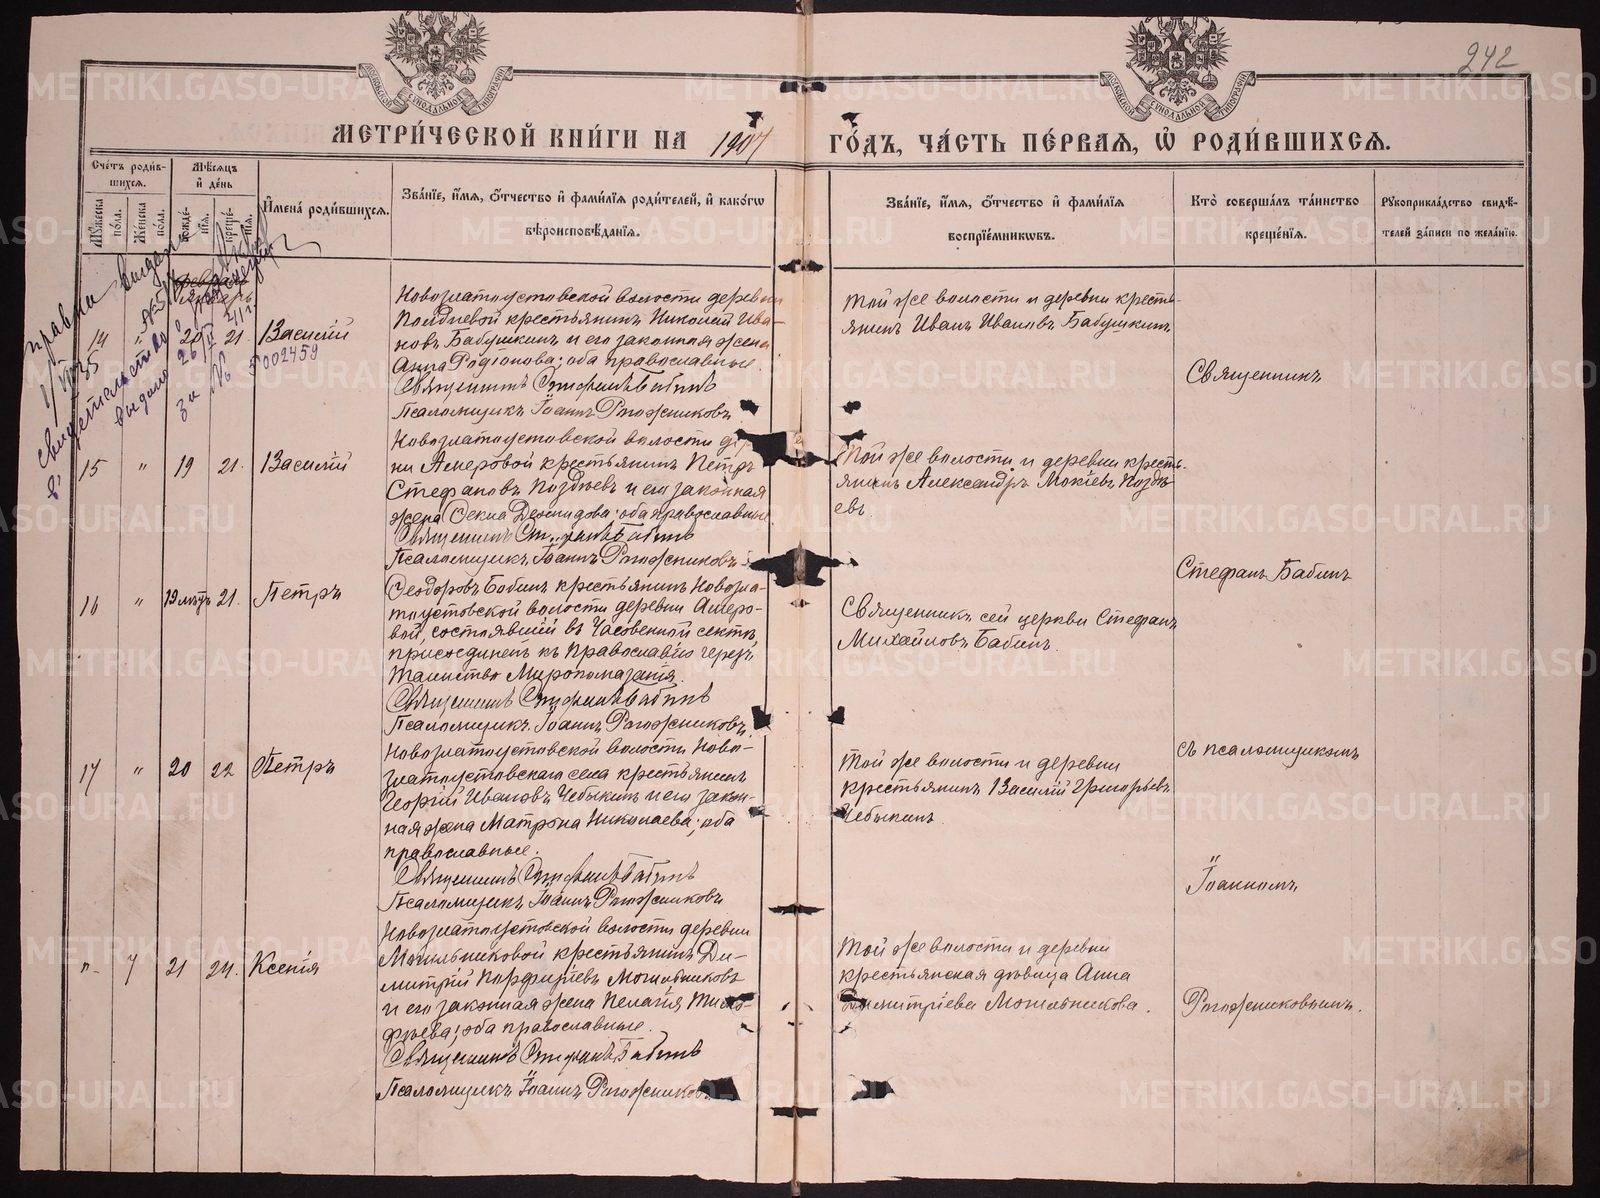 242
МЕТРИ́ЧЕСКОЙ КНИ́ГИ НА 1907 ГО́ДЪ, ЧА́СТЬ ПЕ́РВАЯ, Ѡ҆ РОДИ́ВШИХСЯ.
Сче́тъ роди́в-
шихся.
Мꙋ́жеска по́ла.
Же́нска по́ла.
Мѣ́сяцъ
и҆ де́нь
рожде́-
нїя.
креще́-
нїя.
И҆мена̀ роди́вшихся.
Зва́нїе, и҆́мя, ѻ҆́тчество и҆ фами́лїя роди́телей, и҆ како́гѡ
вѣроисповѣ́данїя.
Зва́нїе, и҆́мя, ѻ҆́тчество и҆ фами́лїя
воспрїе́мникѡвъ.
Кто̀ соверша́лъ та́инство
креще́нїя.
Рꙋкоприкла́дство свидѣ́-
телей за́писи по жела́нїю.
Январь
14 " 20 21. Василій
Новозлатоустовской волости деревни
Поздневой крестьянинъ Николай Ива-
новъ Бабушкинъ и его законная жена
Анна Родіонова; оба православные.
Священникъ Стефанъ Бабинъ
Псаломщикъ Іоаннъ Рогожниковъ
Той же волости и деревни кресть-
янинъ Иванъ Ивановъ Бабушкинъ
Свидетельство
выдано
за № 5002459
15 " 19 21. Василій
Новозлатоустовской волости
ни Амеровой крестьянинъ Петръ
Стефановъ Поздѣевъ и его законная
жена Ѳекла Демидова; оба православные
Священникъ Стефанъ Бабинъ
Псаломщикъ Іоаннъ Рогожниковъ
Той же волости и деревни кресть-
янинъ Александръ Мокіевъ Поздѣ-
евъ.
16 " 19 лѣтъ 21. Петръ
Ѳеодоровъ Бабинъ крестьянинъ Новозла-
тоустовской волости деревни Амеро-
вой, состоявшій въ Часовенной сектѣ,
присоединенъ къ Православію чрезъ
Таинство Мѵропомазанія.
Священникъ Стефанъ Бабинъ
Псаломщикъ Іоаннъ Рогожниковъ
Священникъ сей церкви Стефанъ
Михайловъ Бабинъ.
17 " 20 22 Петръ
Новозлатоустовской волости Ново-
златоустовскаго села крестьянинъ
Георгій Ивановъ Чебыкинъ и его закон-
ная жена Матрона Николаева; оба
православные.
Священникъ Стефанъ Бабинъ
Псаломщикъ Іоаннъ Рогожниковъ
Той же волости и деревни
крестьянинъ Василій Григорьевъ
Чебыкинъ
" 7 21 24. Ксенія
Новозлатоустовской волости деревни
Могильниковой крестьянинъ Ди-
митрій Порфиріевъ Могильниковъ
и его законная жена Пелагія Тимо-
фѣева; оба православные.
Священникъ Стефанъ Бабинъ
Псаломщикъ Іоаннъ Рогожниковъ
Той же волости и деревни
крестьянская дѣвица Анна
Димитріева Могильникова.
Священникъ
Стефанъ Бабинъ
съ псаломщикомъ
Іоанномъ
Рогожниковымъ.
METRIKI.GASO-URAL.RU